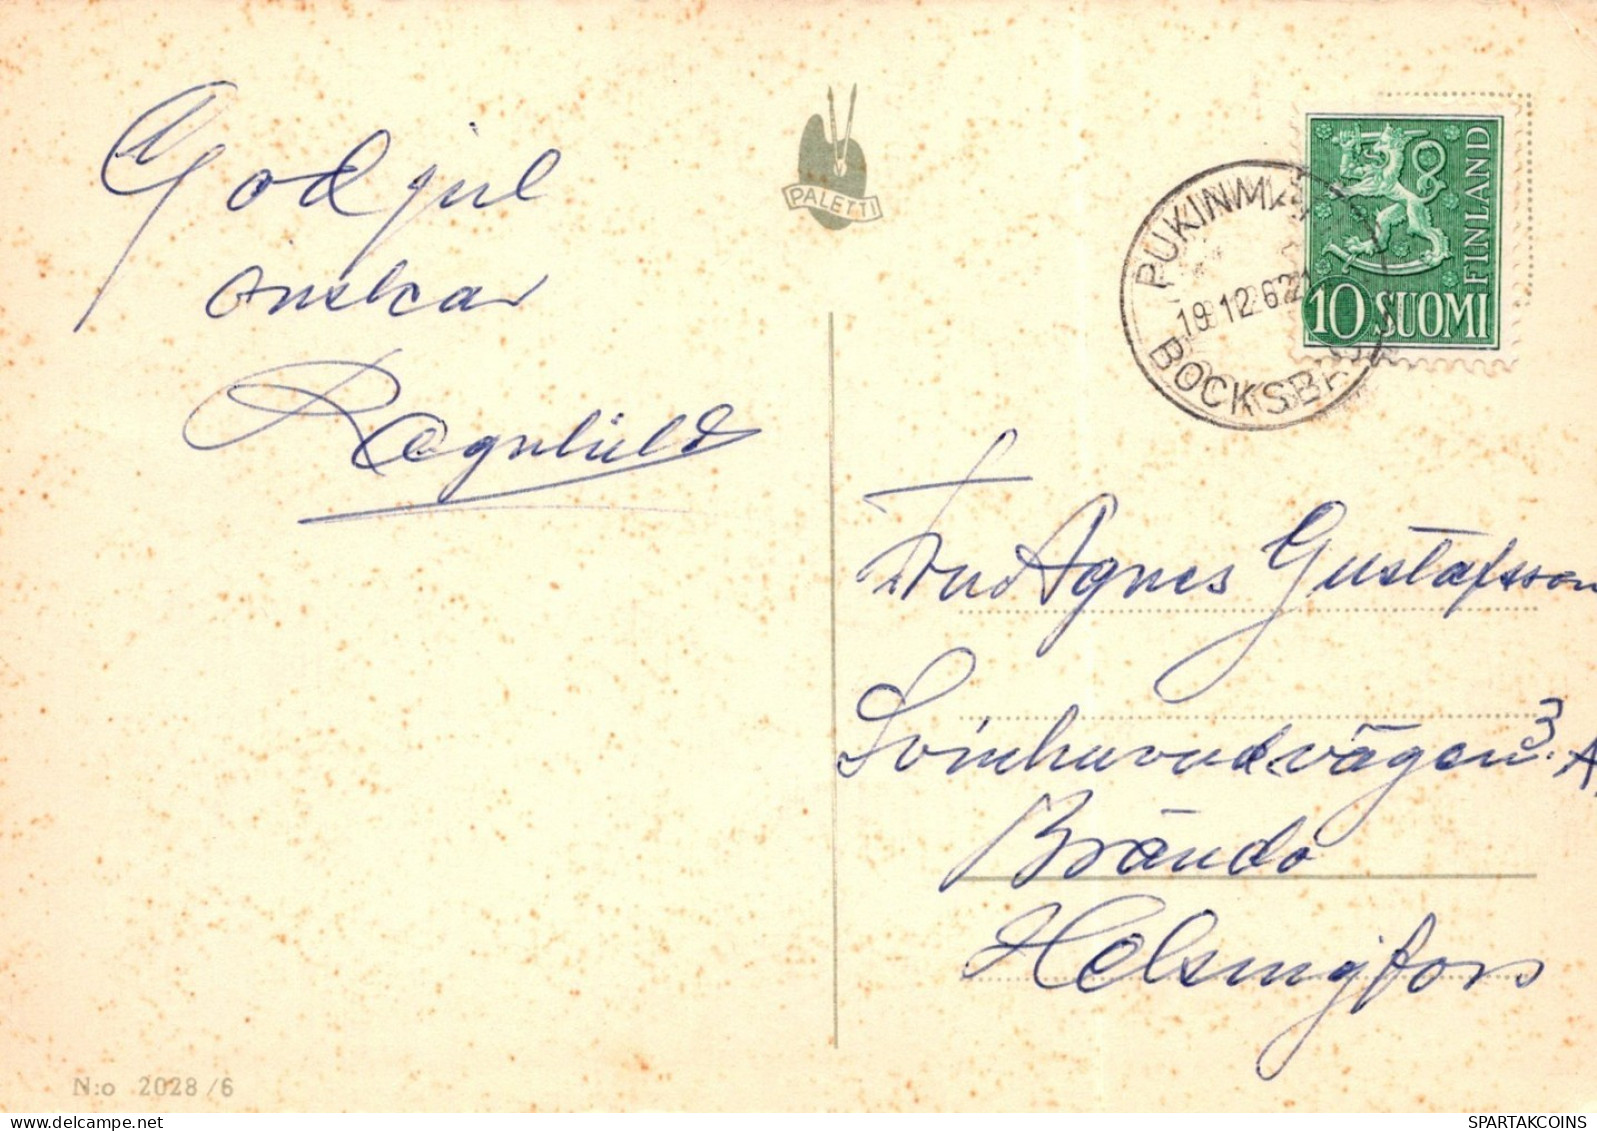 God jul
önskar
Ragnhild
PALETTI
PUKINMÄ
19.12.62
BOCKSBA
FINLAND
10 SUOMI
Fru Agnes Gustafsson
Svinhuvudvägen 3 A
Brändö
Helsingfors
N:o 2028/6
SPARTAKCOINS